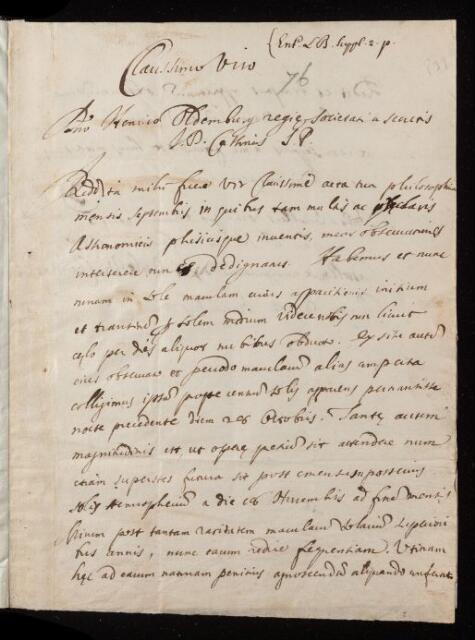 (Ent. LB. suppl. 2. p.
Clarissimo Viro
76
Dno Henrico Oldemburg regiae Societati a secretis
J.D. Cassinus S.P.
Reddita mihi fuere Vir Clarissime acta tua philosophica
mensis Septembris in quibus tam multis ac praeclaris
Astronomicis phisicisque inventis, meas observationes
interserere non dedignaris. Habemus et nunc
in sole maculam cuius apparitionis initium
et transitum per solem medium videre nobis non licuit
caelo per dies aliquot nubibus obducto. Ex situ autem
eius observato et periodo macularum alias comperta
colligimus ipsam
nocte precedente diem 28 Octobris. Tantae autem
magnitudinis est, ut operae pretium sit attendere num
etiam superstes futura sit post
solis Hemispherium a die Novembris ad finem mentis
post tantam raritatem macularum solarium superiori
bus annis, nunc earum redire frequentiam. Utinam
haec ad earum naturam penitius agnoscendam aliquando